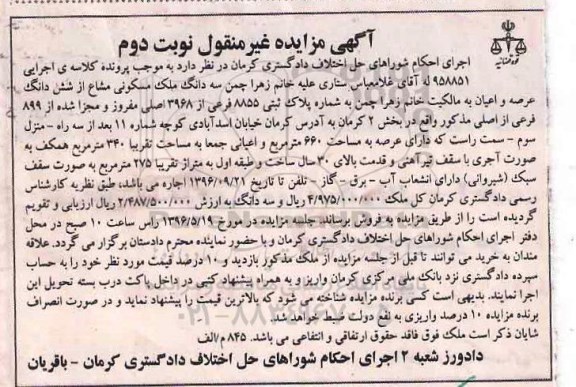 قوه قضائیه
آگهی مزایده غیرمنقول نوبت دوم
اجرای احکام شوراهای حل اختلاف دادگستری کرمان در نظر دارد به موجب پرونده کلاسه ی اجرایی
۹۵۸۸۵۱ له آقای غلامعباس ستاری علیه خانم زهرا چمن سه دانگ ملک مسکونی مشاع از شش دانگ
عرصه و اعیان به مالکیت خانم زهرا چمن به شماره پلاک ثبتی ۸۸۵۵ فرعی از ۳۹۶۸ اصلی مفروز و مجزا شده از ۸۹۹
فرعی از اصلی مذکور واقع در بخش ۲ کرمان به آدرس کرمان خیابان اسدآبادی کوچه شماره ۱۱ بعد از سه راه - منزل
سوم - سمت راست که دارای عرصه به مساحت ۶۶۰ مترمربع و اعیانی جمعا به مساحت تقریبا ۳۴۰ مترمربع همکف به
صورت آجری با سقف تیرآهنی و قدمت بالای ۳۰ سال ساخت و طبقه اول به متراژ تقریبا ۲۷۵ مترمربع به صورت سقف
سبک (شیروانی) دارای انشعاب آب - برق - گاز - تلفن تا تاریخ ۱۳۹۶/۰۹/۲۱ اجاره می باشد، طبق نظریه کارشناس
رسمی دادگستری کرمان کل ملک ۴/۹۷۵/۰۰۰/۰۰۰ ریال و سه دانگ به ارزش ۲/۴۸۷/۵۰۰/۰۰۰ ریال ارزیابی و تقویم
گردیده است را از طریق مزایده به فروش برساند. جلسه مزایده در مورخ ۱۳۹۶/۵/۱۹ راس ساعت ۱۰ صبح در محل
دفتر اجرای احکام شوراهای حل اختلاف دادگستری کرمان و با حضور نماینده محترم دادستان برگزار می گردد. علاقه
مندان به خرید می توانند تا قبل از جلسه مزایده از ملک مذکور بازدید و ۱۰ درصد قیمت مورد نظر خود را به حساب
سپرده دادگستری نزد بانک ملی مرکزی کرمان واریز و به همراه پیشنهاد کتبی در داخل پاکت درب بسته تحویل این
اجرا نمایند. بدیهی است کسی برنده مزایده شناخته می شود که بالاترین قیمت را پیشنهاد نماید و در صورت انصراف
برنده مزایده ۱۰ درصد واریزی به نفع دولت ضبط خواهد شد.
شایان ذکر است ملک فوق فاقد حقوق ارتفاقی و انتفاعی می باشد. ۸۴۵ م/الف
دادورز شعبه ۲ اجرای احکام شوراهای حل اختلاف دادگستری کرمان - باقریان